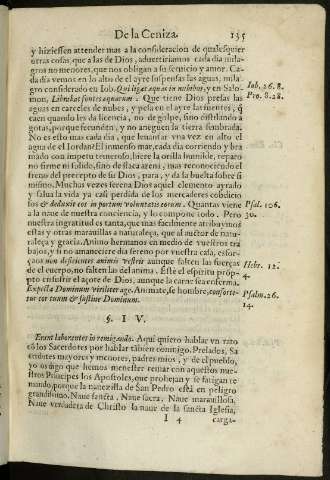 De la Ceniza. 135
y hiziessen attender mas a la consideracion de qualesquier
otras cosas, que a las de Dios, advertiriamos cada dia mila-
gros no menores, que nos obligan a su servicio y amor. Ca-
da dia vemos en lo alto de el ayre suspensas las aguas, mila-
gro considerado en Iob. Qui ligat aquas in nubibus, y en Salo-
mon, Librabat fontes aquarum: Que tiene Dios presas las
aguas en carceles de nubes, y pesalas en el ayre fuentes, q̃
caen quando les da licencia, no de golpe, sino destilando a
gotas, porque fecunden, y no aneguen la tierra sembrada.
No es esto mas cada dia, que levantar una vez en alto el
agua de el Iordan? El inmenso mar, cada dia corriendo y bra
mado con impetu temeroso, hiere la orilla humilde, reparo
no firme ni solido, sino de flaca arena, mas reconociẽdo el
freno del precepto de su Dios, para, y da la buelta sobre si
mismo. Muchas vezes tierra Dios aquel elemento ayrado
y salva la vida ya casi perdida de los mercaderes codicio-
sos & deduxit eos in portum voluntatis eorum. Quantas viene
a la nave de nuestra conciencia, y lo compone todo. Pero
nuestra ingratitud es tanta, que mas facilmente atribuymos
estas y otras maravillas a naturaleça, que al auctor de natu-
raleça y gracia. Animo hermanos en medio de vuestros tra
bajos, y si no amaneciere dia sereno por vuestra casa, esfor-
çaos non deficientes animis vestris aunque falten las fuerças
de el cuerpo, no falten las del anima. Este el espiritu prõp-
pto en sufrir el açote de Dios, aunque la carne sea enferma.
Expecta Dominum viriliter age, Animate, se hombre, conforte-
tur cor tuum & sustine Dominum.
Iob. 26. 8.
Pro. 8. 28.
Psal. 106.
30.
Hebr. 12.
4.
Psalm. 26.
14.
§. I V.
Erant laborantes in remigando. Aqui quiero hablar un rato
cõ los Sacerdotes por hablar tãbien conmigo. Prelados, Sa
cerdotes mayores y menores, padres mios, y de el pueblo,
yo os digo que hemos menester remar con aquestos nues-
tros Principes los Apostoles, que trabajan y se fatigan re
mando, porque la navezilla de San Pedro està en peligro
grandissimo. Nave sancta. Nave sacra. Nave maravillosa.
Nave verdadera de Christo la nave de la sancta Iglesia,
I 4 carga-